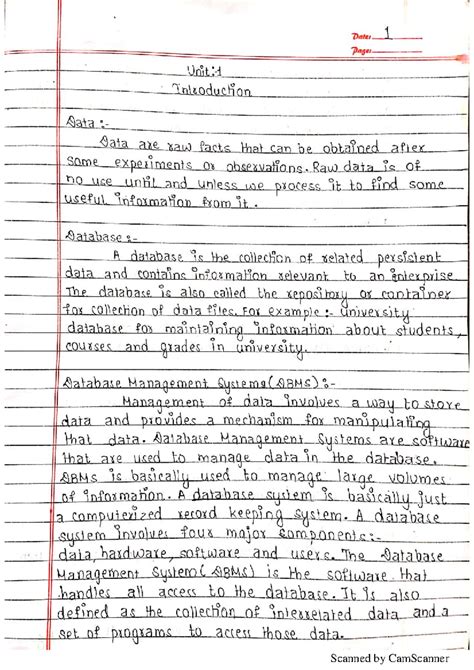 Date: 1
Page:
Unit:1
Introduction
Data :-
Data are raw facts that can be obtained after
some experiments or observations. Raw data is of
no use until and unless we process it to find some
useful information from it.
Database :-
A database is the collection of related persistent
data and contains information relevant to an enterprise.
The database is also called the repository or container
for collection of data files. For example :- University
database for maintaining information about students,
courses and grades in university.
Database Management Systems(DBMS) :-
Management of data involves a way to store
data and provides a mechanism for manipulating
that data. Database Management Systems are software
that are used to manage data in the database.
DBMS is basically used to manage large volumes
of information. A database system is basically just
a computerized record keeping system. A database
system involves four major components:-
data, hardware, software and users. The Database
Management System (DBMS) is the software that
handles all access to the database. It is also
defined as the collection of interrelated data and a
set of programs to access those data.
Scanned by CamScanner